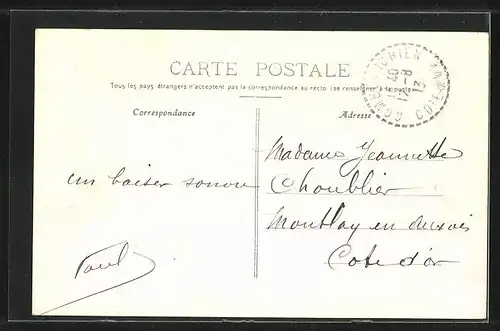 CARTE POSTALE
Tous les pays étrangers n'acceptent pas la correspondance au recto (se renseigner à la poste)
Correspondance
Adresse
un baiser sonore
Paul
Madame Jeannette
Choublier
Montlay en auxois
Cote d'or
COTE-D'OR